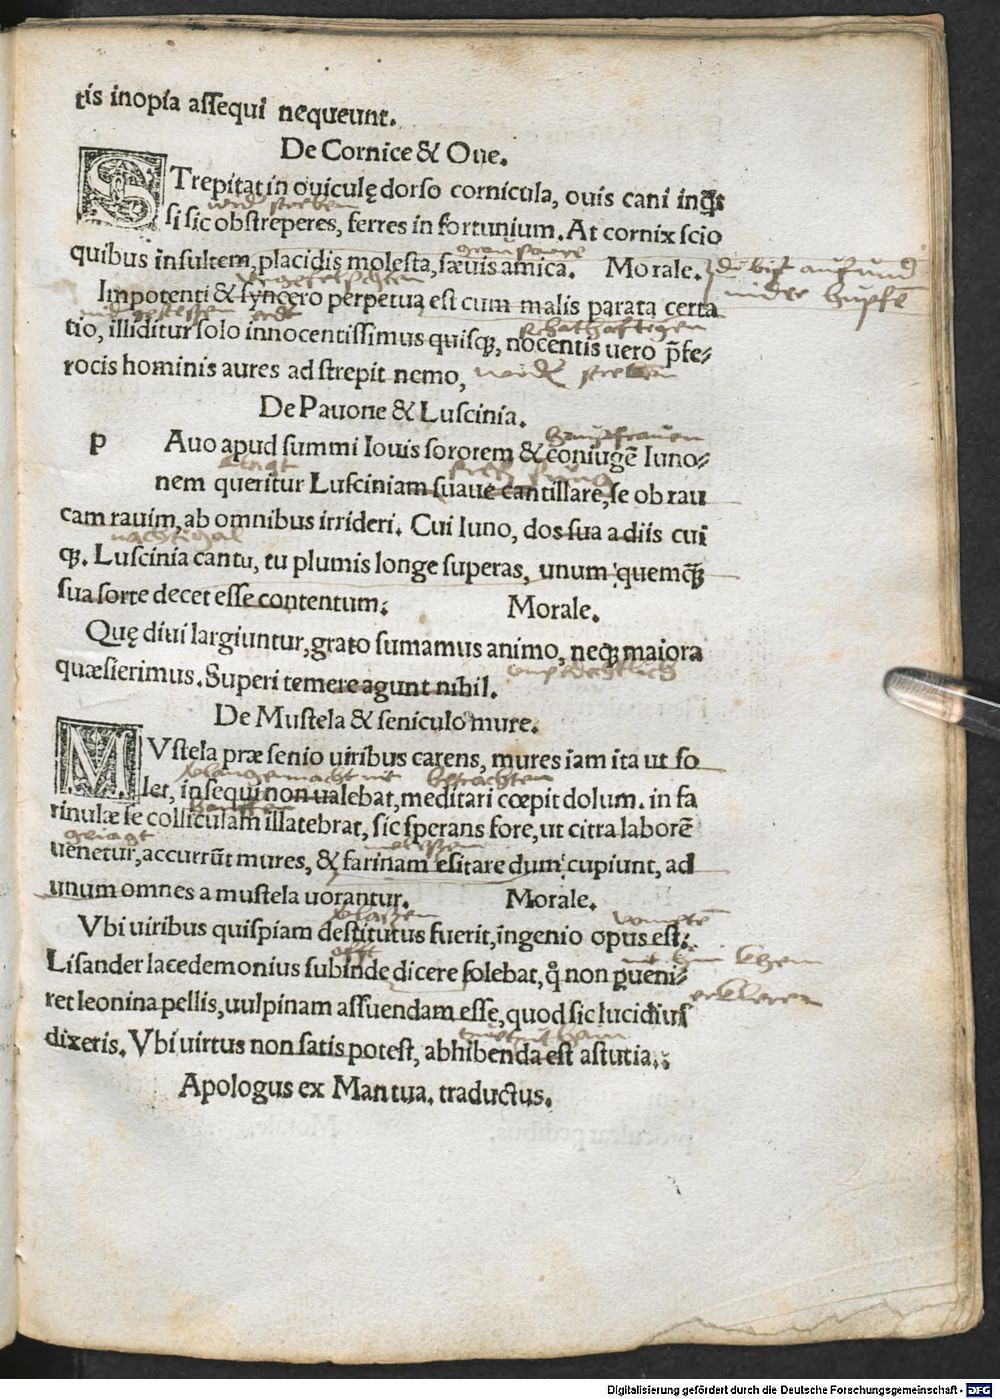 tis inopia assequi nequeunt.
De Cornice & Oue.
STrepitat in ouiculę dorso cornicula, ouis cani inqͥt
si sic obstreperes, ferres in fortunium. At cornix scio
quibus insultem, placidis molesta, sæuis amica. Morale.
du bist auf und
nider hupfē
Impotenti & syncero perpetua est cum malis parata certa
tio, illiditur solo innocentissimus quisqꝫ, nocentis uero p̄fe-
schathaftigen
rocis hominis aures ad strepit nemo,
De Pauone & Luscinia.
hausfrauen
p Auo apud summi Iouis sororem & coniugē Iuno-
klagt
nem queritur Lusciniam suaue cantillare, se ob rau
cam rauim, ab omnibus irrideri. Cui Iuno, dos sua a diis cui
nachtigal
qꝫ. Luscinia cantu, tu plumis longe superas, unum quemqꝫ
sua sorte decet esse contentum. Morale.
Quę diui largiuntur, grato sumamus animo, neqꝫ maiora
quæsierimus. Superi temere agunt nihil.
De Mustela & seniculo mure.
MVstela præ senio uiribus carens, mures iam ita ut so
betrachten
let, insequi non ualebat, meditari cœpit dolum. in fa
hauffen
rinulæ se colliculam illatebrat, sic sperans fore, ut citra laborē
geiagt
uenetur, accurrūt mures, & farinam esitare dum cupiunt, ad
unum omnes a mustela uorantur. Morale.
Vbi uiribus quispiam destitutus fuerit, ingenio opus est.
offt
Lisander lacedemonius subinde dicere solebat, qͦ non ꝑueni-
erkleren
ret leonina pellis, uulpinam assuendam esse, quod sic lucidius
dixeris. Vbi uirtus non satis potest, abhibenda est astutia.
Apologus ex Mantua. traductus.
Digitalisierung gefördert durch die Deutsche Forschungsgemeinschaft - DFG